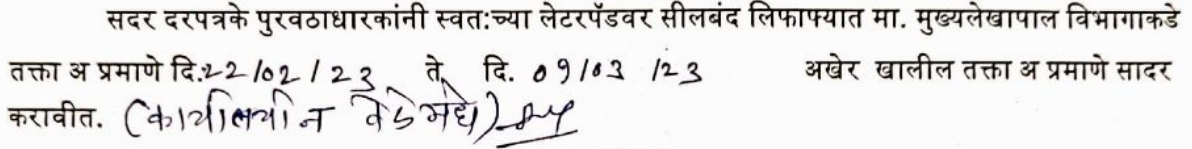 सदर दरपत्रके पुरवठाधारकांनी स्वत:च्या लेटरपॅडवर सीलबंद लिफाफ्यात मा. मुख्यलेखापाल विभागाकडे
तक्ता अ प्रमाणे दि.22/02/23 ते दि. 09/03/23 अखेर खालील तक्ता अ प्रमाणे सादर
करावीत. (कार्यालयीन वेळेमधे)